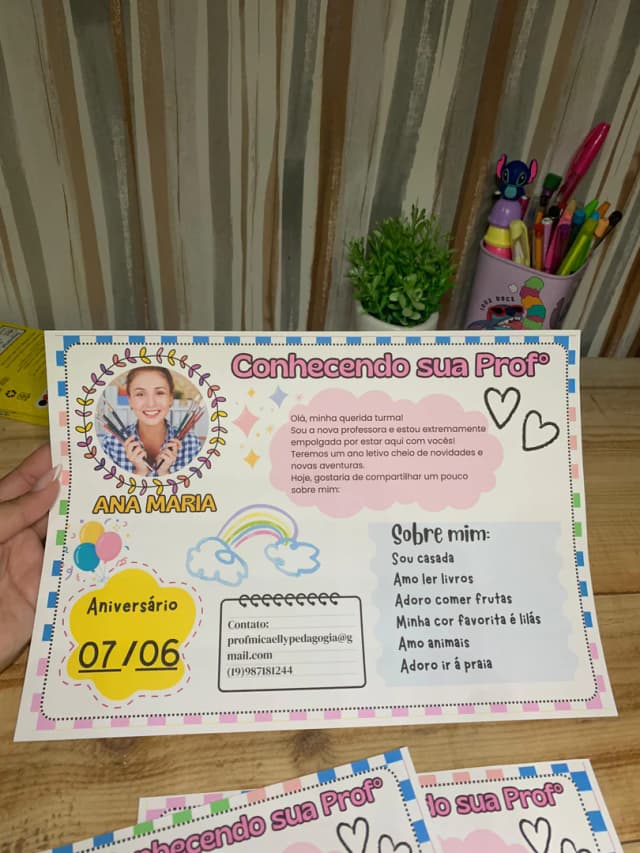 Conhecendo sua Profº
Olá, minha querida turma!
Sou a nova professora e estou extremamente
empolgada por estar aqui com vocês!
Teremos um ano letivo cheio de novidades e
novas aventuras.
Hoje, gostaria de compartilhar um pouco
sobre mim:
ANA MARIA
Sobre mim:
Sou casada
Amo ler livros
Adoro comer frutas
Minha cor favorita é lilás
Amo animais
Adoro ir á praia
Aniversário
07/06
Contato:
profmicaellypedagogia@g
mail.com
(19)987181244
hecendo sua Profº
do sua Profº